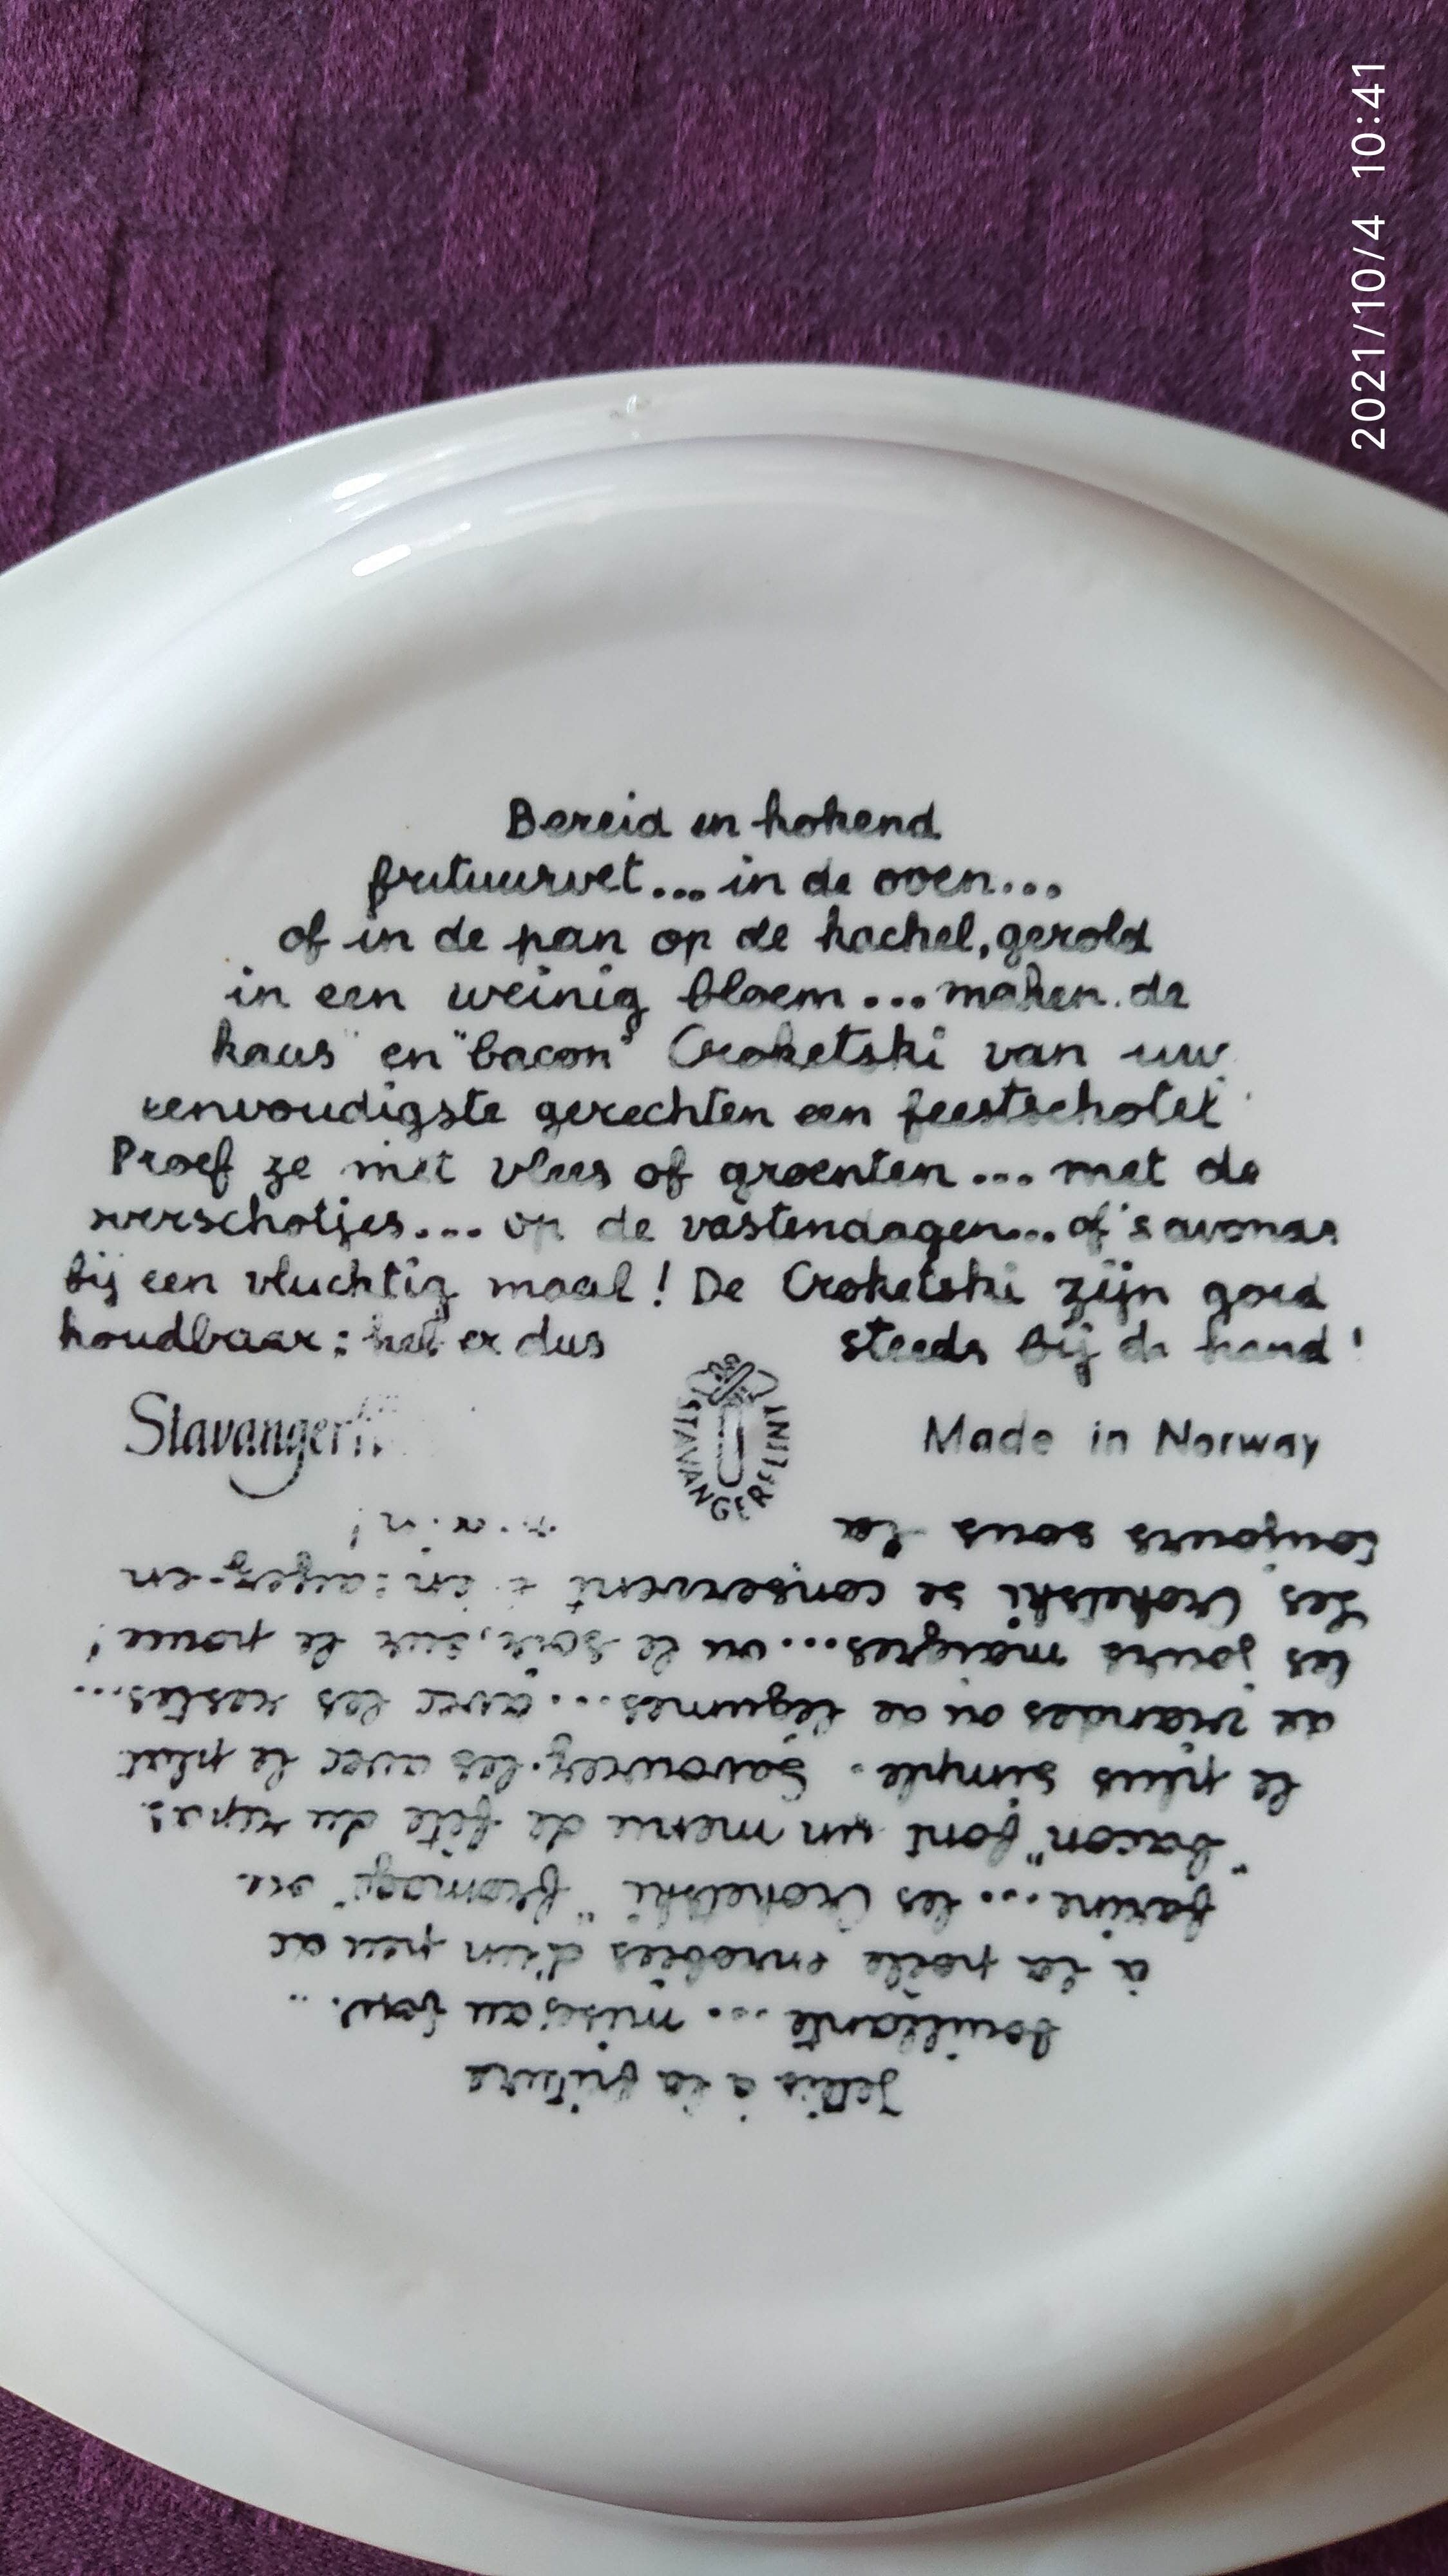 2021/10/4 10:41
Bereid in kokend
frituurvet... in de oven...
of in de pan op de kachel, gerold
in een weinig bloem... maken de
kaas" en "bacon" Croketski van uw
eenvoudigste gerechten een feestschotel
Proef ze met vlees of groenten... met de
overschotjes... op de vastendagen... of 's avonds
bij een vluchtig maal! De Croketski zijn goed
houdbaar: heb er dus steeds bij de hand!
Stavanger
STAVANGERFLINT
Made in Norway
Jetés à la friture
bouillante... mises au four...
à la poêle enrobées d'un peu de
farine... les Croketski "fromage" ou
"bacon" font un menu de fête du repas
le plus simple. Savourez-les avec le plat
de viandes ou de légumes... avec les restes...
les jours maigres... ou le soir, sur le pouce!
Les Croketski se conservent : ayez-en
toujours sous la